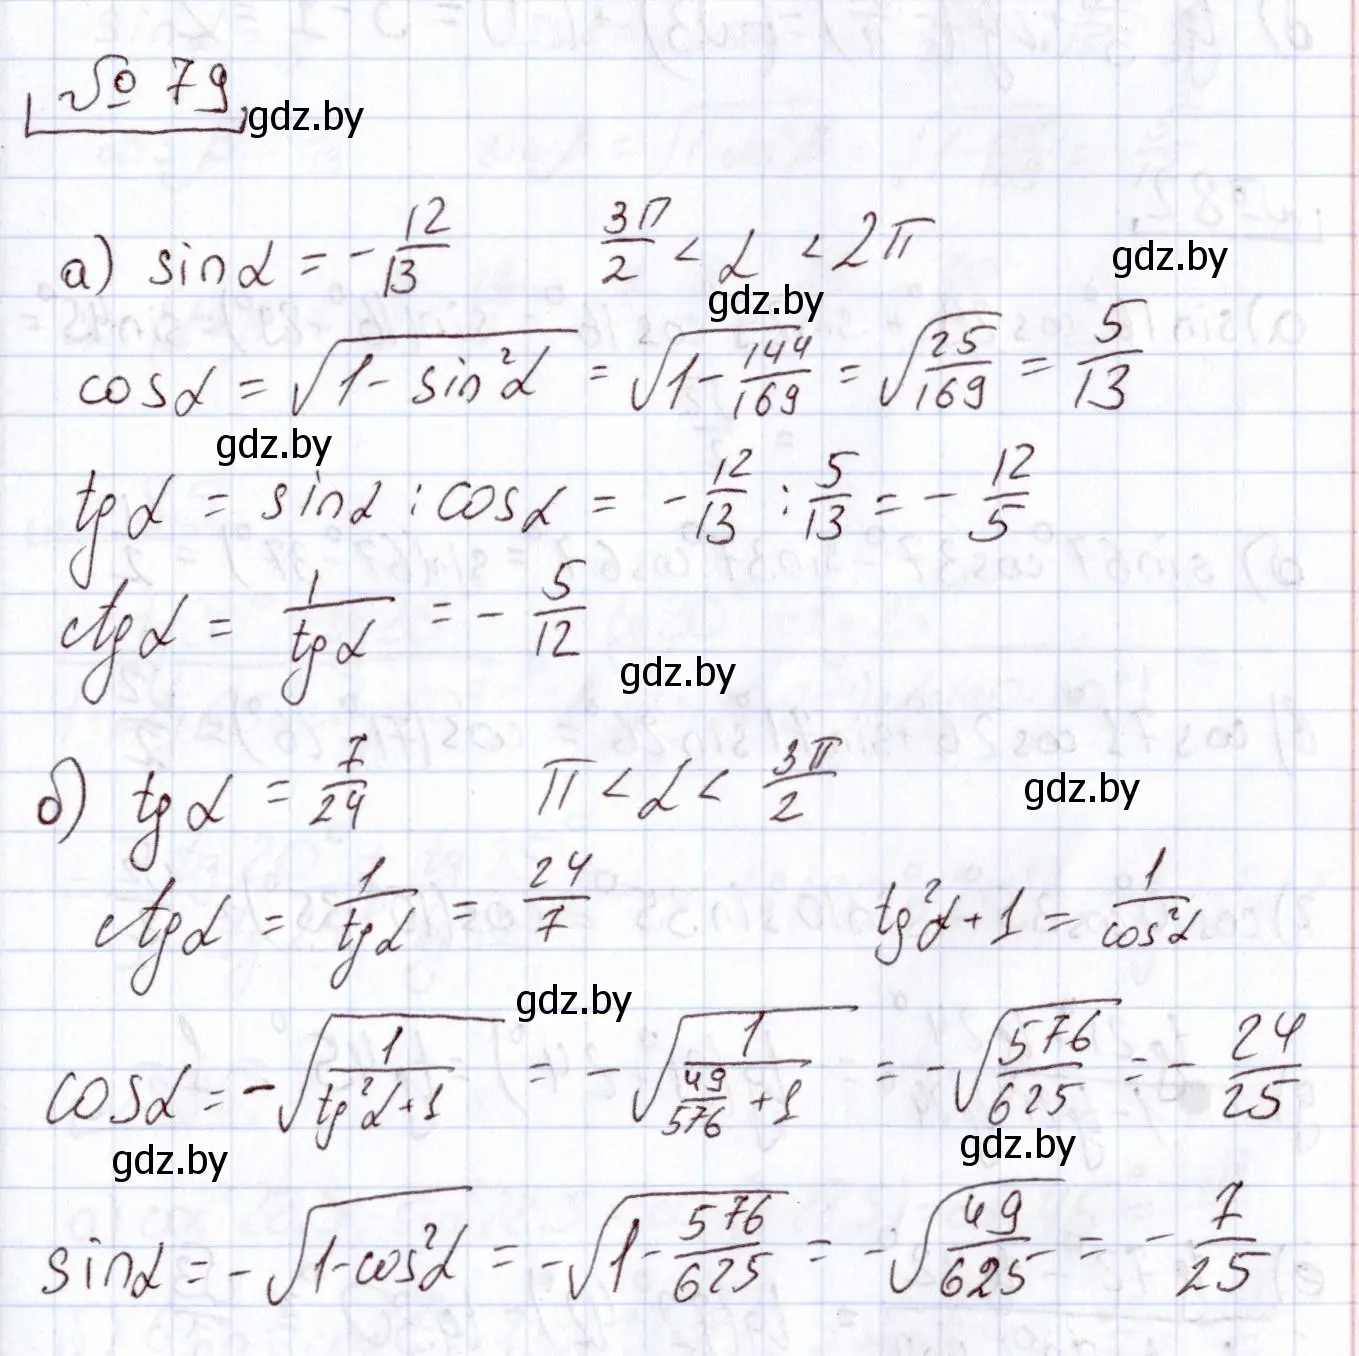 № 79 gdz.by
а) sin α = - 12/13    3π/2 < α < 2π gdz.by
gdz.by
cos α = √(1 - sin²α) = √(1 - 144/169) = √(25/169) = 5/13
gdz.by
tg α = sin α : cos α = - 12/13 : 5/13 = - 12/5
ctg α = 1/tg α = - 5/12
gdz.by
б) tg α = 7/24    π < α < 3π/2 gdz.by
ctg α = 1/tg α = 24/7    tg²α + 1 = 1/cos²α
gdz.by
cos α = -√(1/(tg²α + 1)) = -√(1/(49/576 + 1)) = -√(576/625) = - 24/25
gdz.by gdz.by
sin α = -√(1 - cos²α) = -√(1 - 576/625) = -√(49/625) = - 7/25